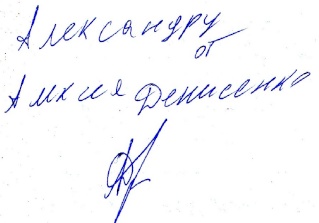 Александру
от
Алксея Денисенко